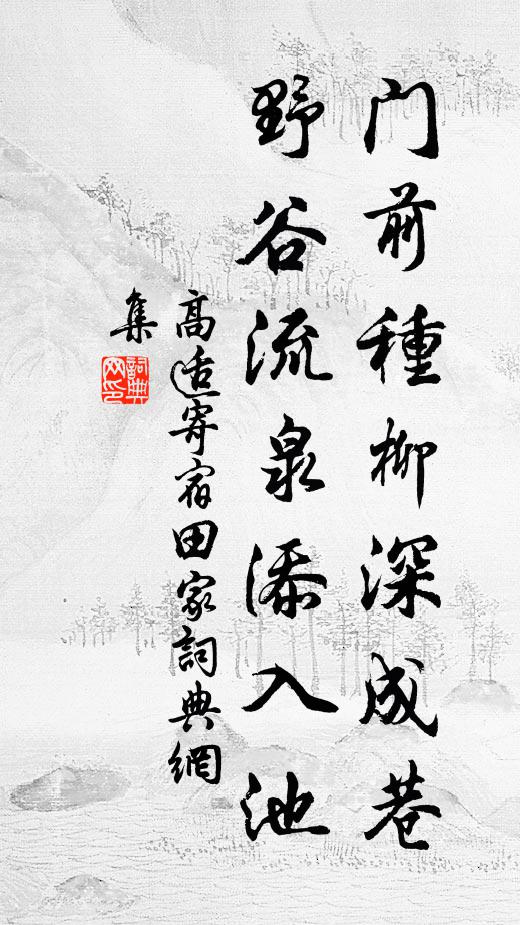 门前種柳深成巷
野谷流泉添入池
高适寄宿田家詞典網
集
詞典
网印